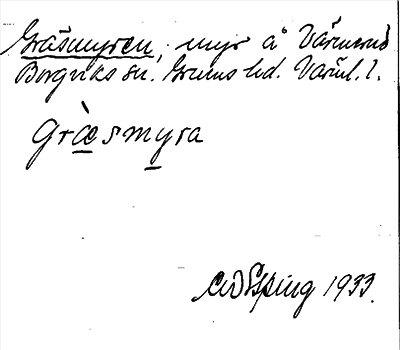 Gräsmyren, myr å Värmend
Borgviks sn. Grums hd. Värml. l.
Græ̀smyra
Espling 1933.